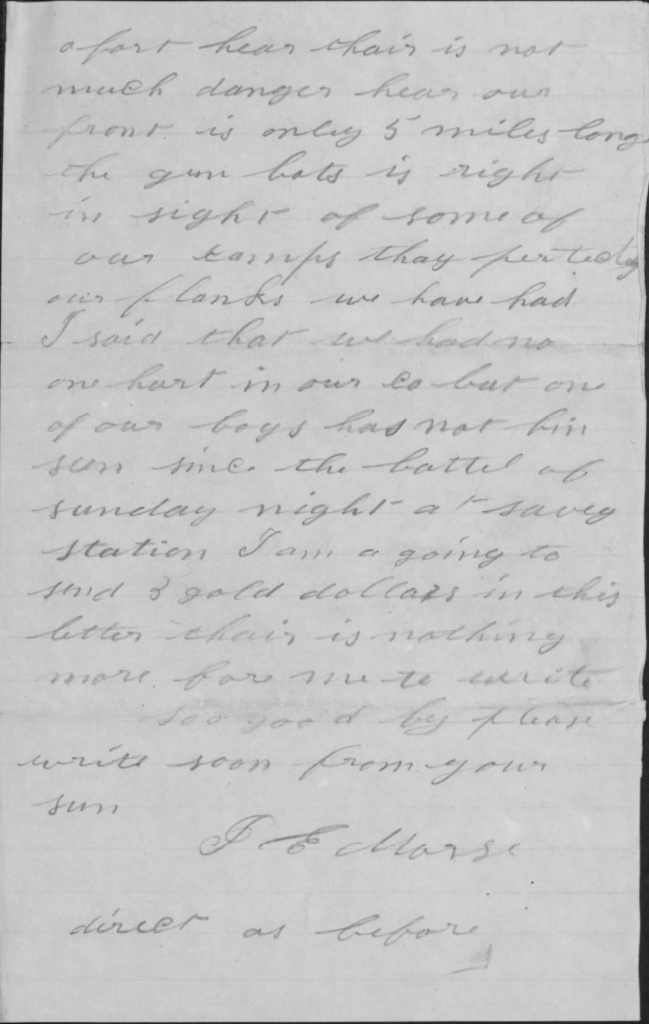 a fort hear thair is not
much danger hear our
front is only 5 miles long
the gun bots is right
in sight of some of
our camps thay pertedg
our flanks we have had
I said that we had no
one hurt in our co but one
of our boys has not bin
seen since the battel of
sunday night at savey
station I am a going to
send 3 gold dollars in this
letter thair is nothing
more fore me to write
soo good by please
write soon from your
sun
J E Morse
direct as before